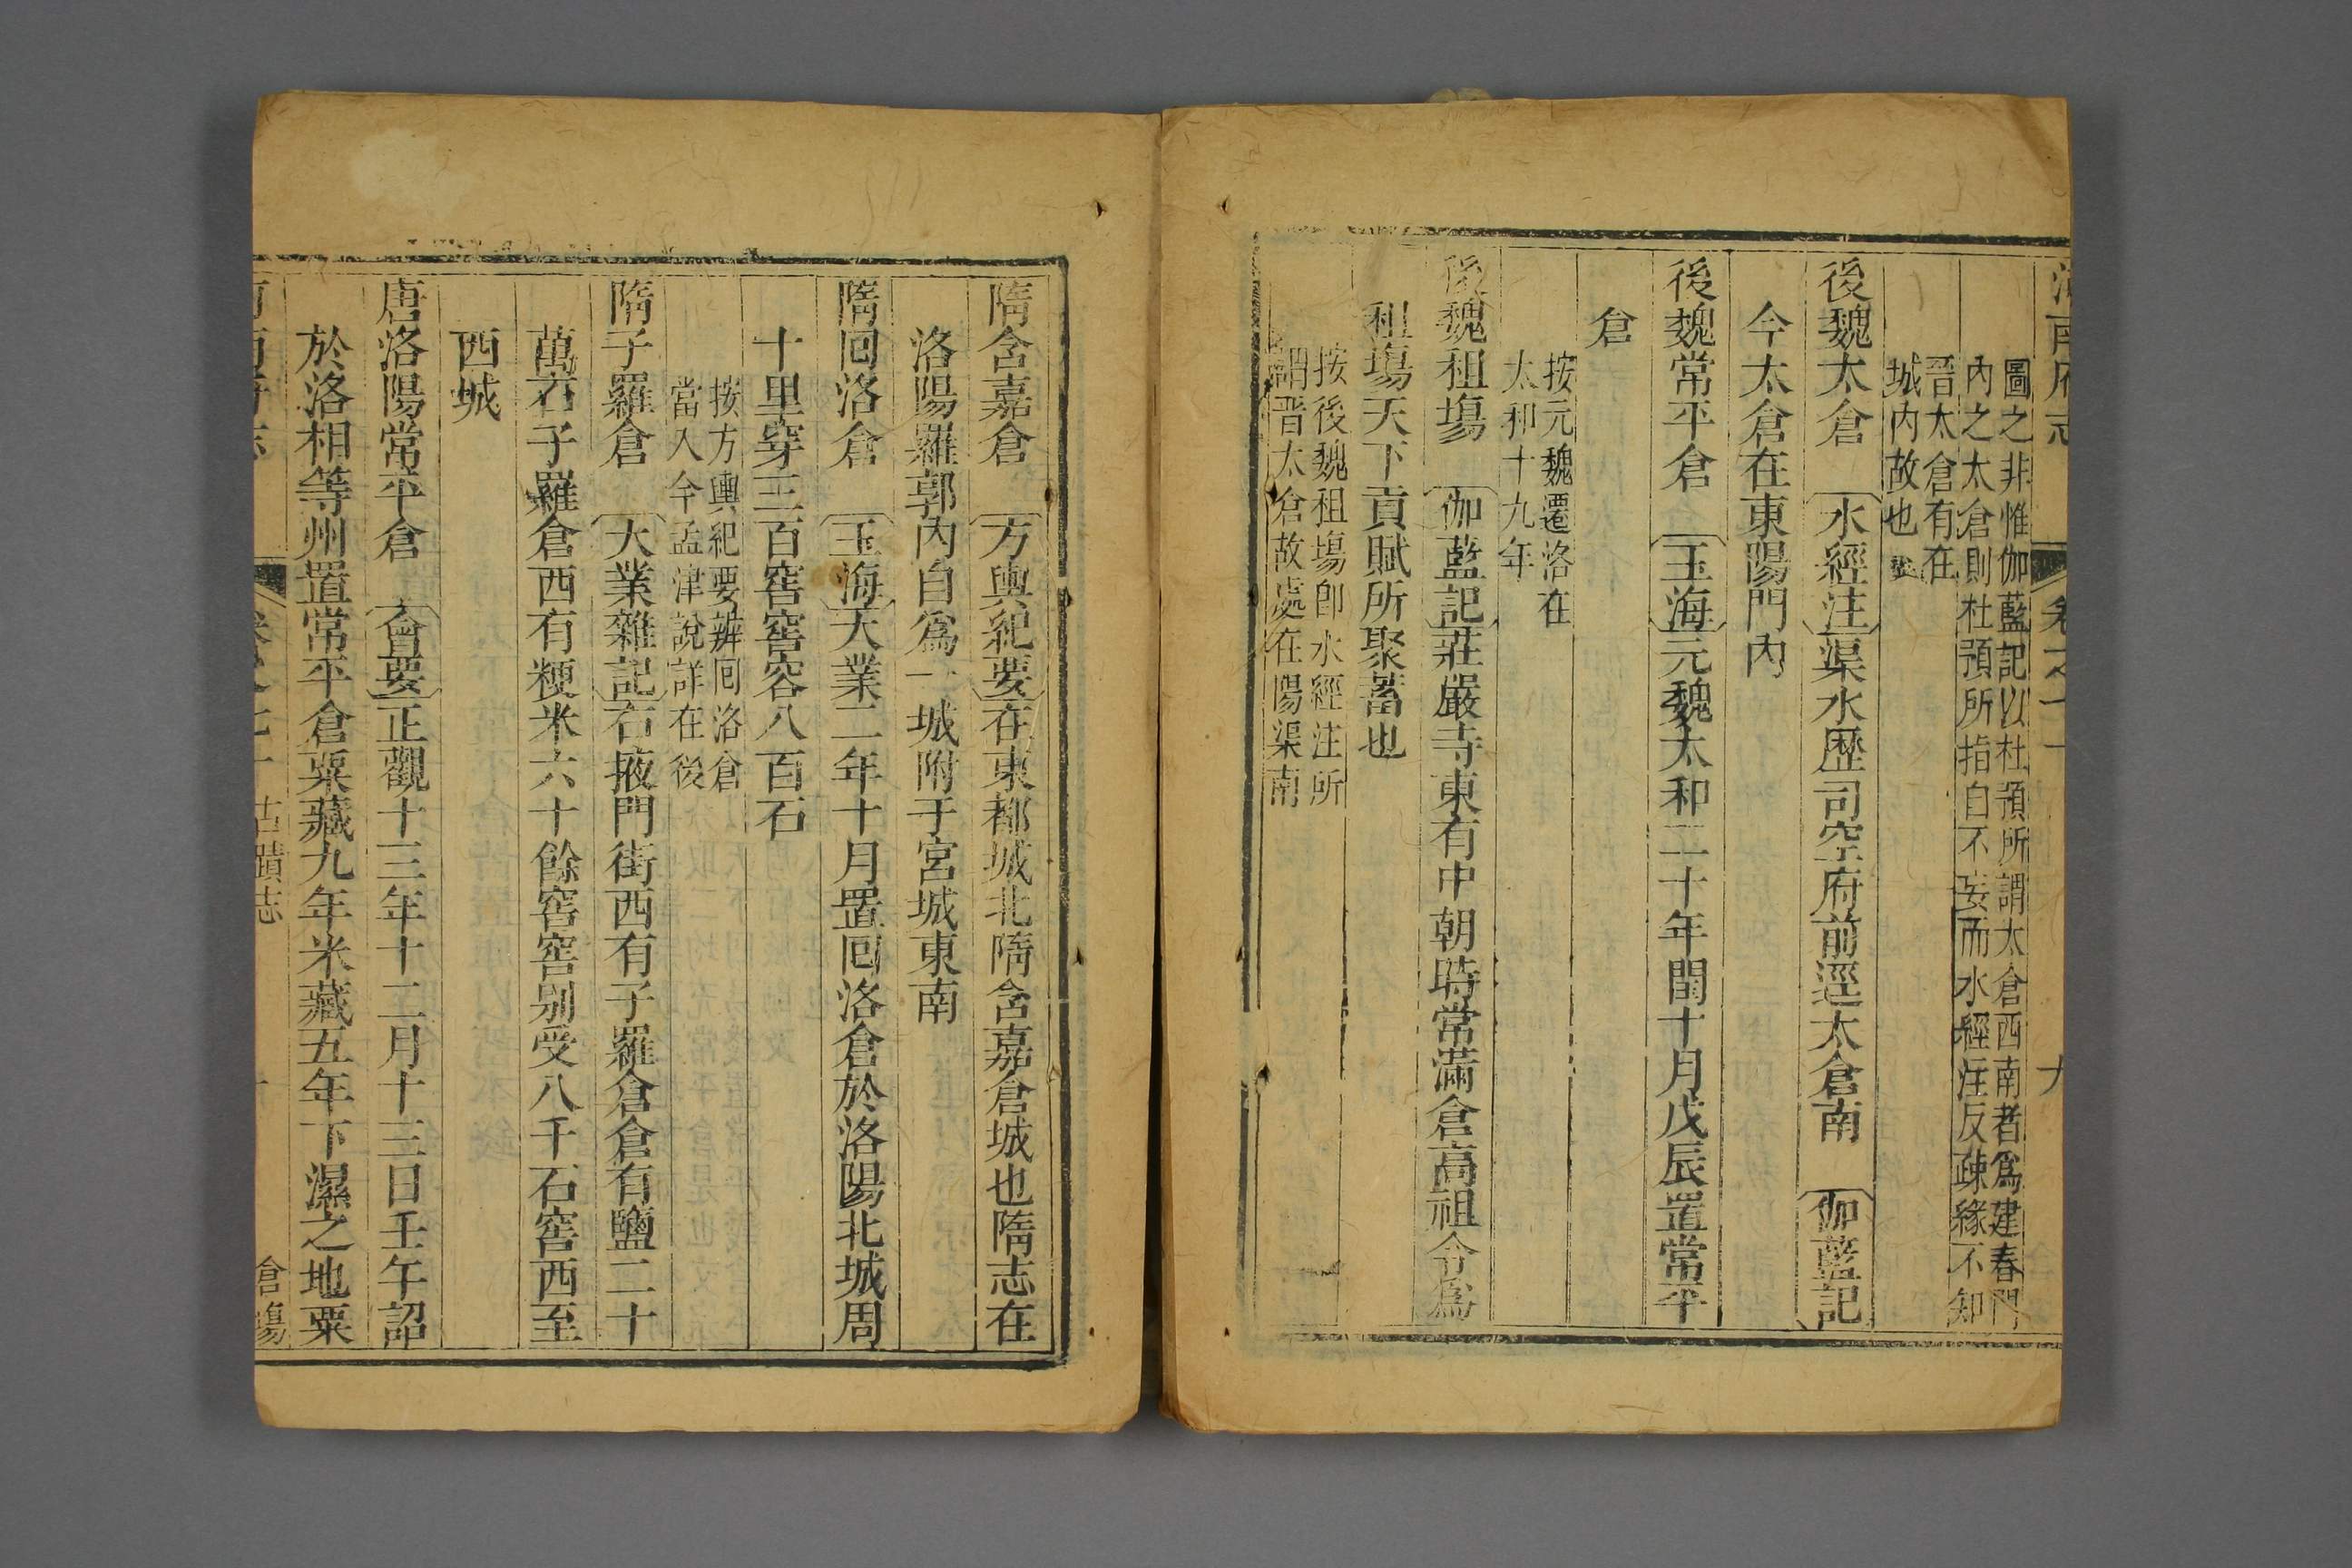 河南府志 卷之 九
圖之非惟伽藍記以杜預所謂太倉西南者爲建春門
內之太倉則杜預所指自不妄而水經注反疎緣不知
晉太倉有在
城內故也
後魏太倉 水經注渠水歷司空府前逕太倉南 伽藍記
今太倉在東陽門內
後魏常平倉 玉海元魏太和二十年閏十月戊辰置常平
倉
按元魏遷洛在
太和十九年
後魏租塲 伽藍記莊嚴寺東有中朝時常滿倉高祖令爲
租塲天下貢賦所聚蓄也
按後魏租塲卽水經注所
謂晉太倉故處在陽渠南
隋含嘉倉 方輿紀要在東都城北隋含嘉倉城也隋志在
洛陽羅郭內自爲一城附于宮城東南
隋回洛倉 玉海大業二年十月置回洛倉於洛陽北城周
十里穿三百窖窖容八百石
按方輿紀要辨回洛倉
當入今孟津說詳在後
隋子羅倉 大業雜記右掖門街西有子羅倉倉有鹽二十
萬石子羅倉西有粳米六十餘窖窖别受八千石窖西至
西城
唐洛陽常平倉 會要正觀十三年十二月十三日壬午詔
於洛相等州置常平倉粟藏九年米藏五年下濕之地粟
古蹟志 倉塲